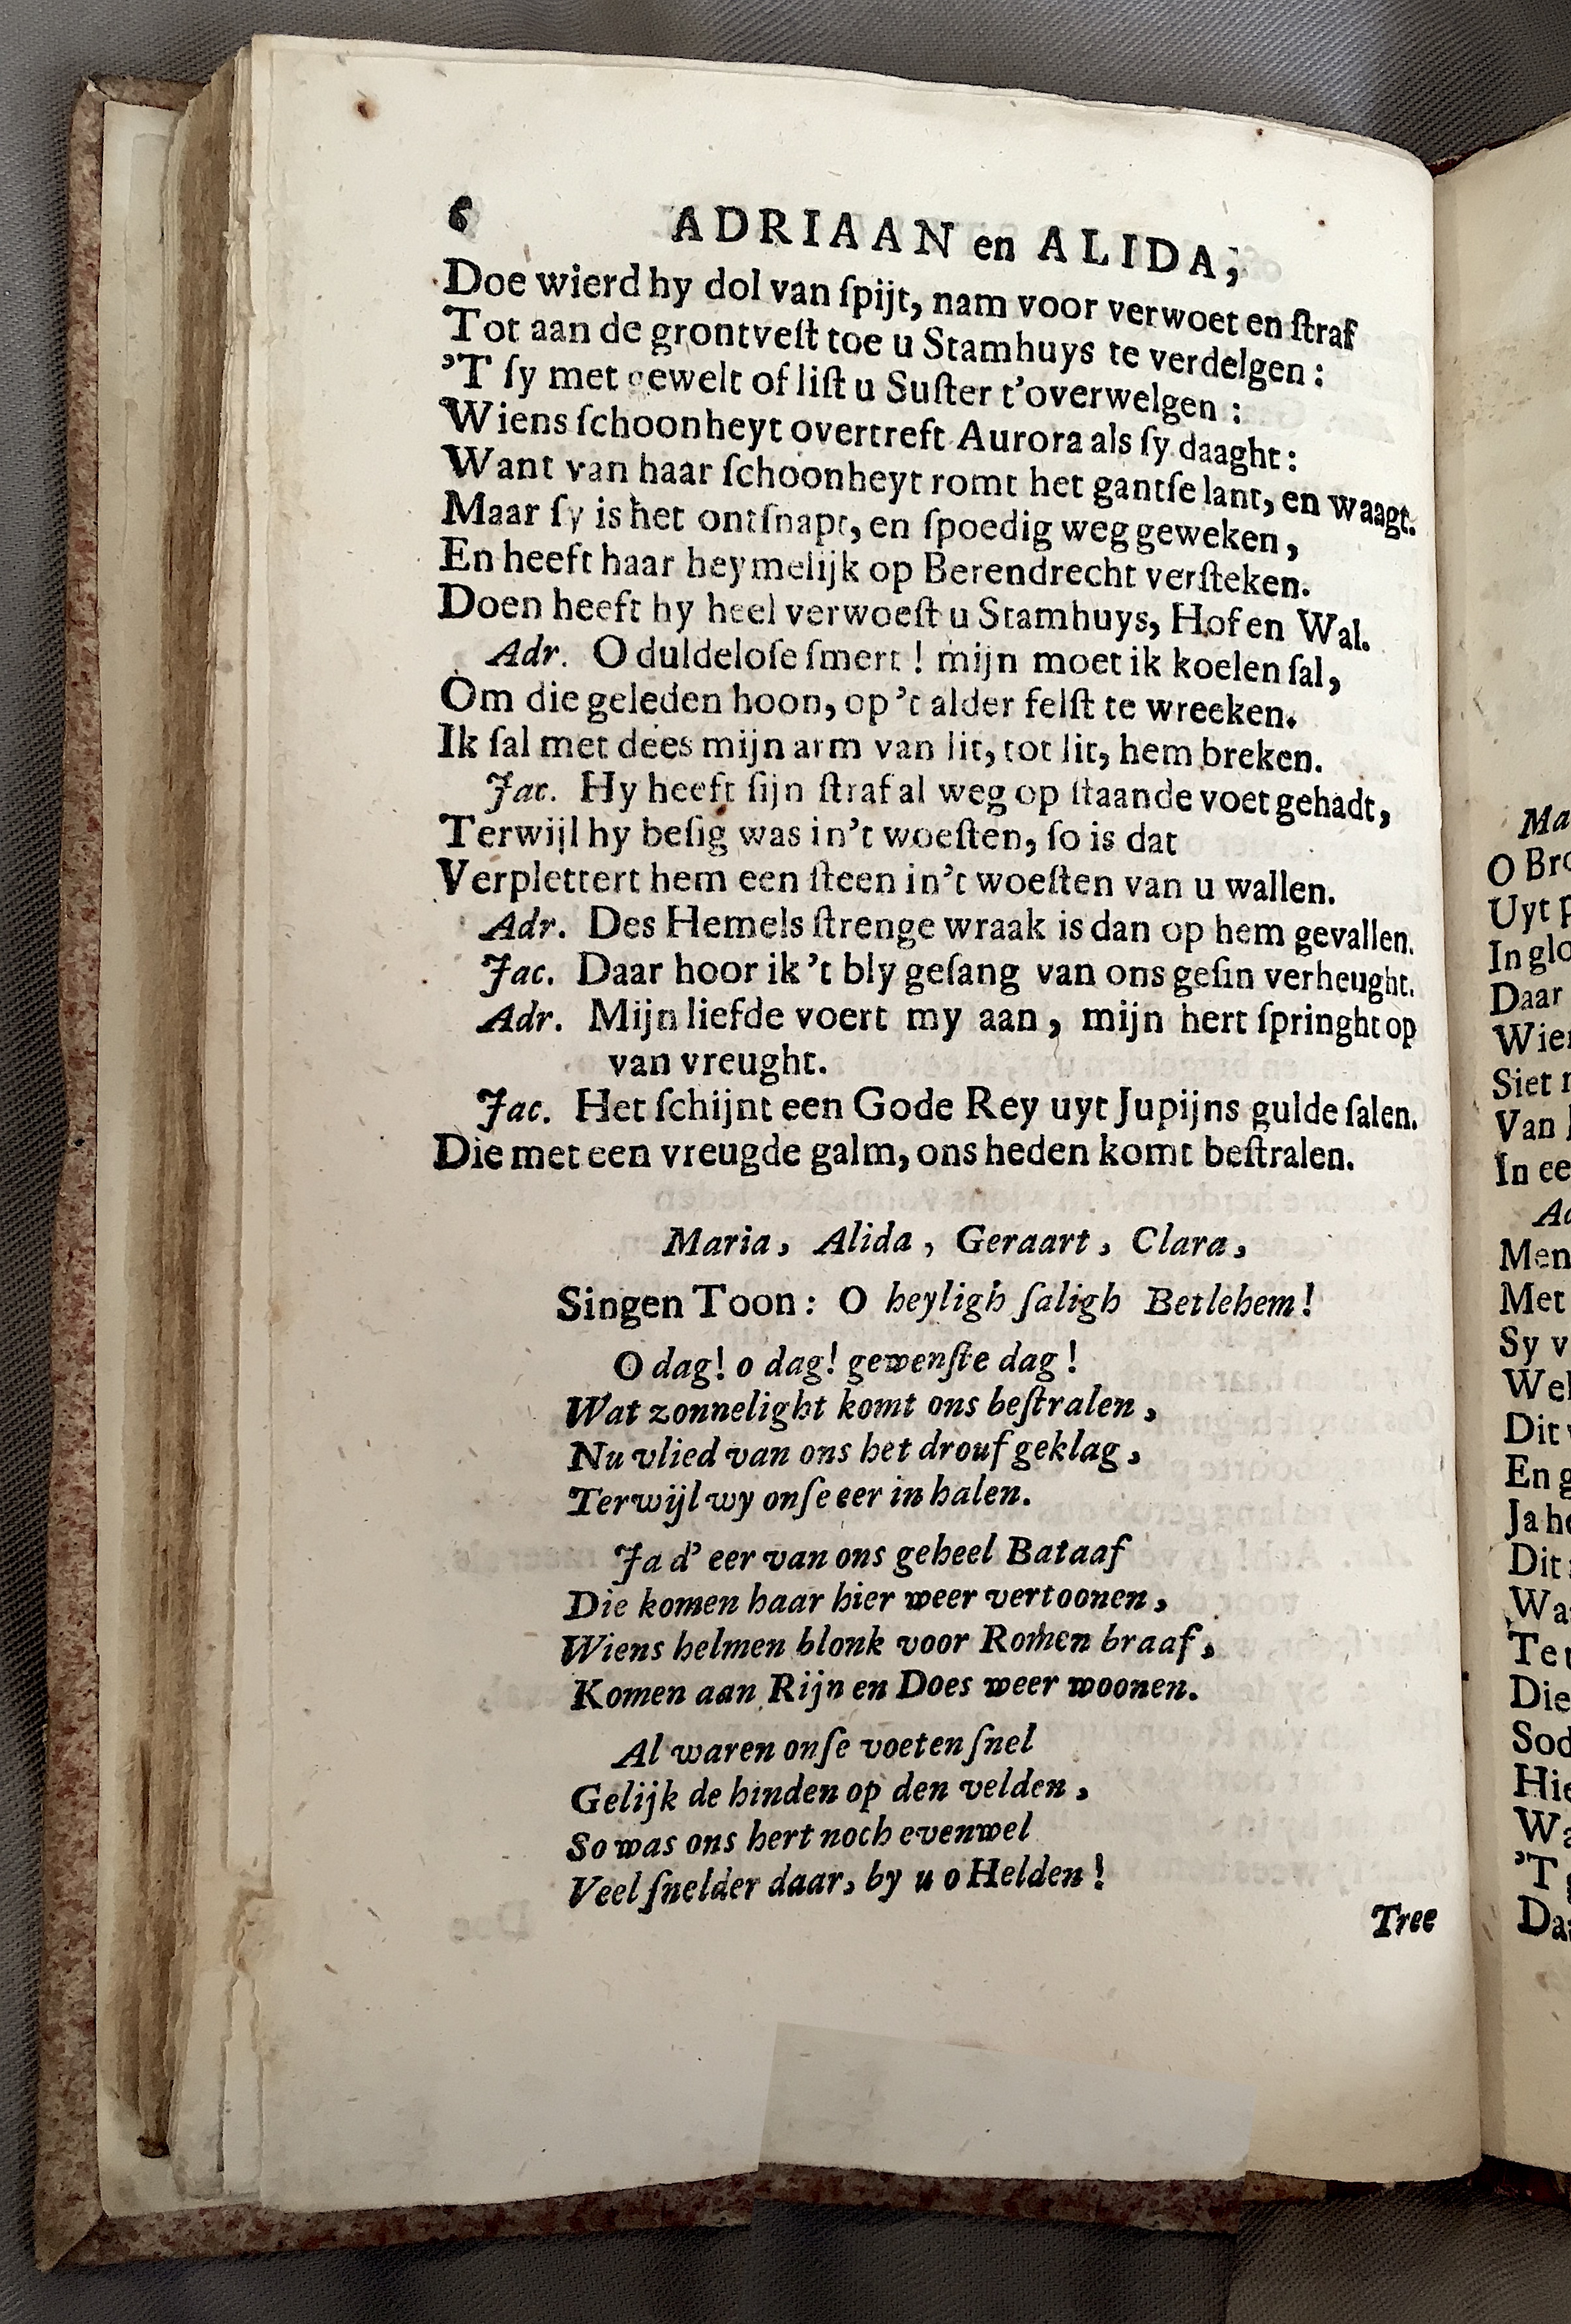 6 ADRIAAN en ALIDA,
Doe wierd hy dol van ſpijt, nam voor verwoet en ſtraf
Tot aan de grontveſt toe u Stamhuys te verdelgen:
'T ſy met gewelt of liſt u Suſter t'overwelgen:
Wiens ſchoonheyt overtreft Aurora als ſy daaght:
Want van haar ſchoonheyt romt het gantſe lant, en waagt.
Maar ſy is het ontſnapt, en ſpoedig weg geweken,
En heeft haar heymelijk op Berendrecht verſteken.
Doen heeft hy heel verwoeſt u Stamhuys, Hof en Wal.
Adr. O duldeloſe ſmert! mijn moet ik koelen ſal,
Om die geleden hoon, op 't alder felſt te wreeken.
Ik ſal met dees mijn arm van lit, tot lit, hem breken.
Jac. Hy heeft ſijn ſtraf al weg op ſtaande voet gehadt,
Terwijl hy beſig was in't woeſten, ſo is dat
Verplettert hem een ſteen in't woeſten van u wallen.
Adr. Des Hemels ſtrenge wraak is dan op hem gevallen.
Jac. Daar hoor ik 't bly geſang van ons geſin verheught.
Adr. Mijn liefde voert my aan, mijn hert ſpringht op
van vreught.
Jac. Het ſchijnt een Gode Rey uyt Jupijns gulde ſalen.
Die met een vreugde galm, ons heden komt beſtralen.
Maria, Alida, Geraart, Clara,
Singen Toon: O heyligh ſaligh Betlehem!
O dag! o dag! gewenſte dag!
Wat zonnelight komt ons beſtralen,
Nu vlied van ons het drouf geklag,
Terwijl wy onſe eer in halen.
Ja d' eer van ons geheel Bataaf
Die komen haar hier weer vertoonen,
Wiens helmen blonk voor Romen braaf,
Komen aan Rijn en Does weer woonen.
Al waren onſe voeten ſnel
Gelijk de hinden op den velden,
So was ons hert noch evenwel
Veel ſnelder daar, by u o Helden!
Tree
Ma
O Bro
Uyt
In glo
Daar
Wie
Siet
Van
In ee
Men
Met
Sy v
Wel
Dit
En g
Ja ho
Dit
Wa
Te
Die
Sod
Hie
Wa
'T
Da